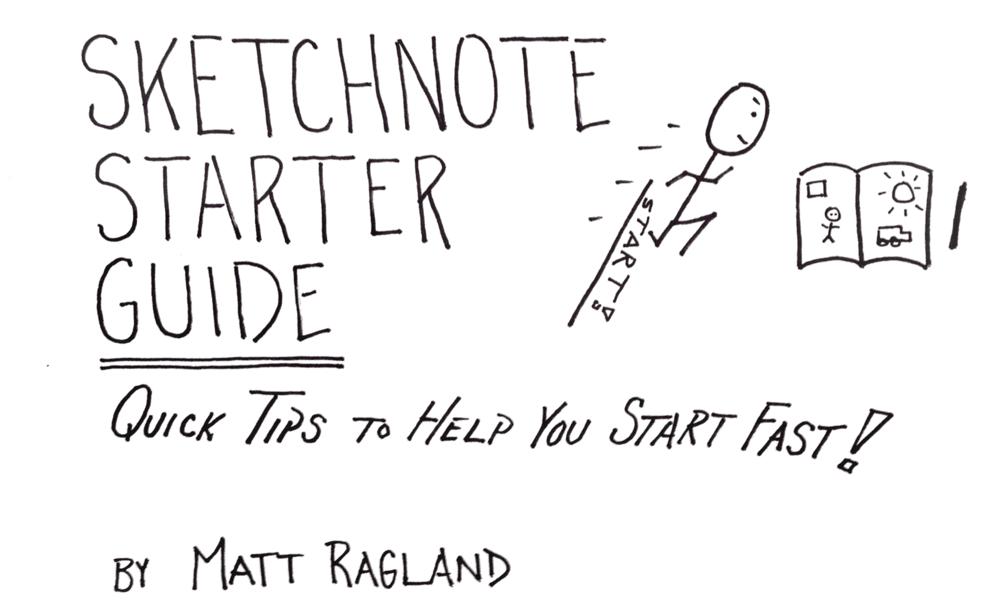 SKETCHNOTE
STARTER
GUIDE
START!
QUICK TIPS TO HELP YOU START FAST!
BY MATT RAGLAND